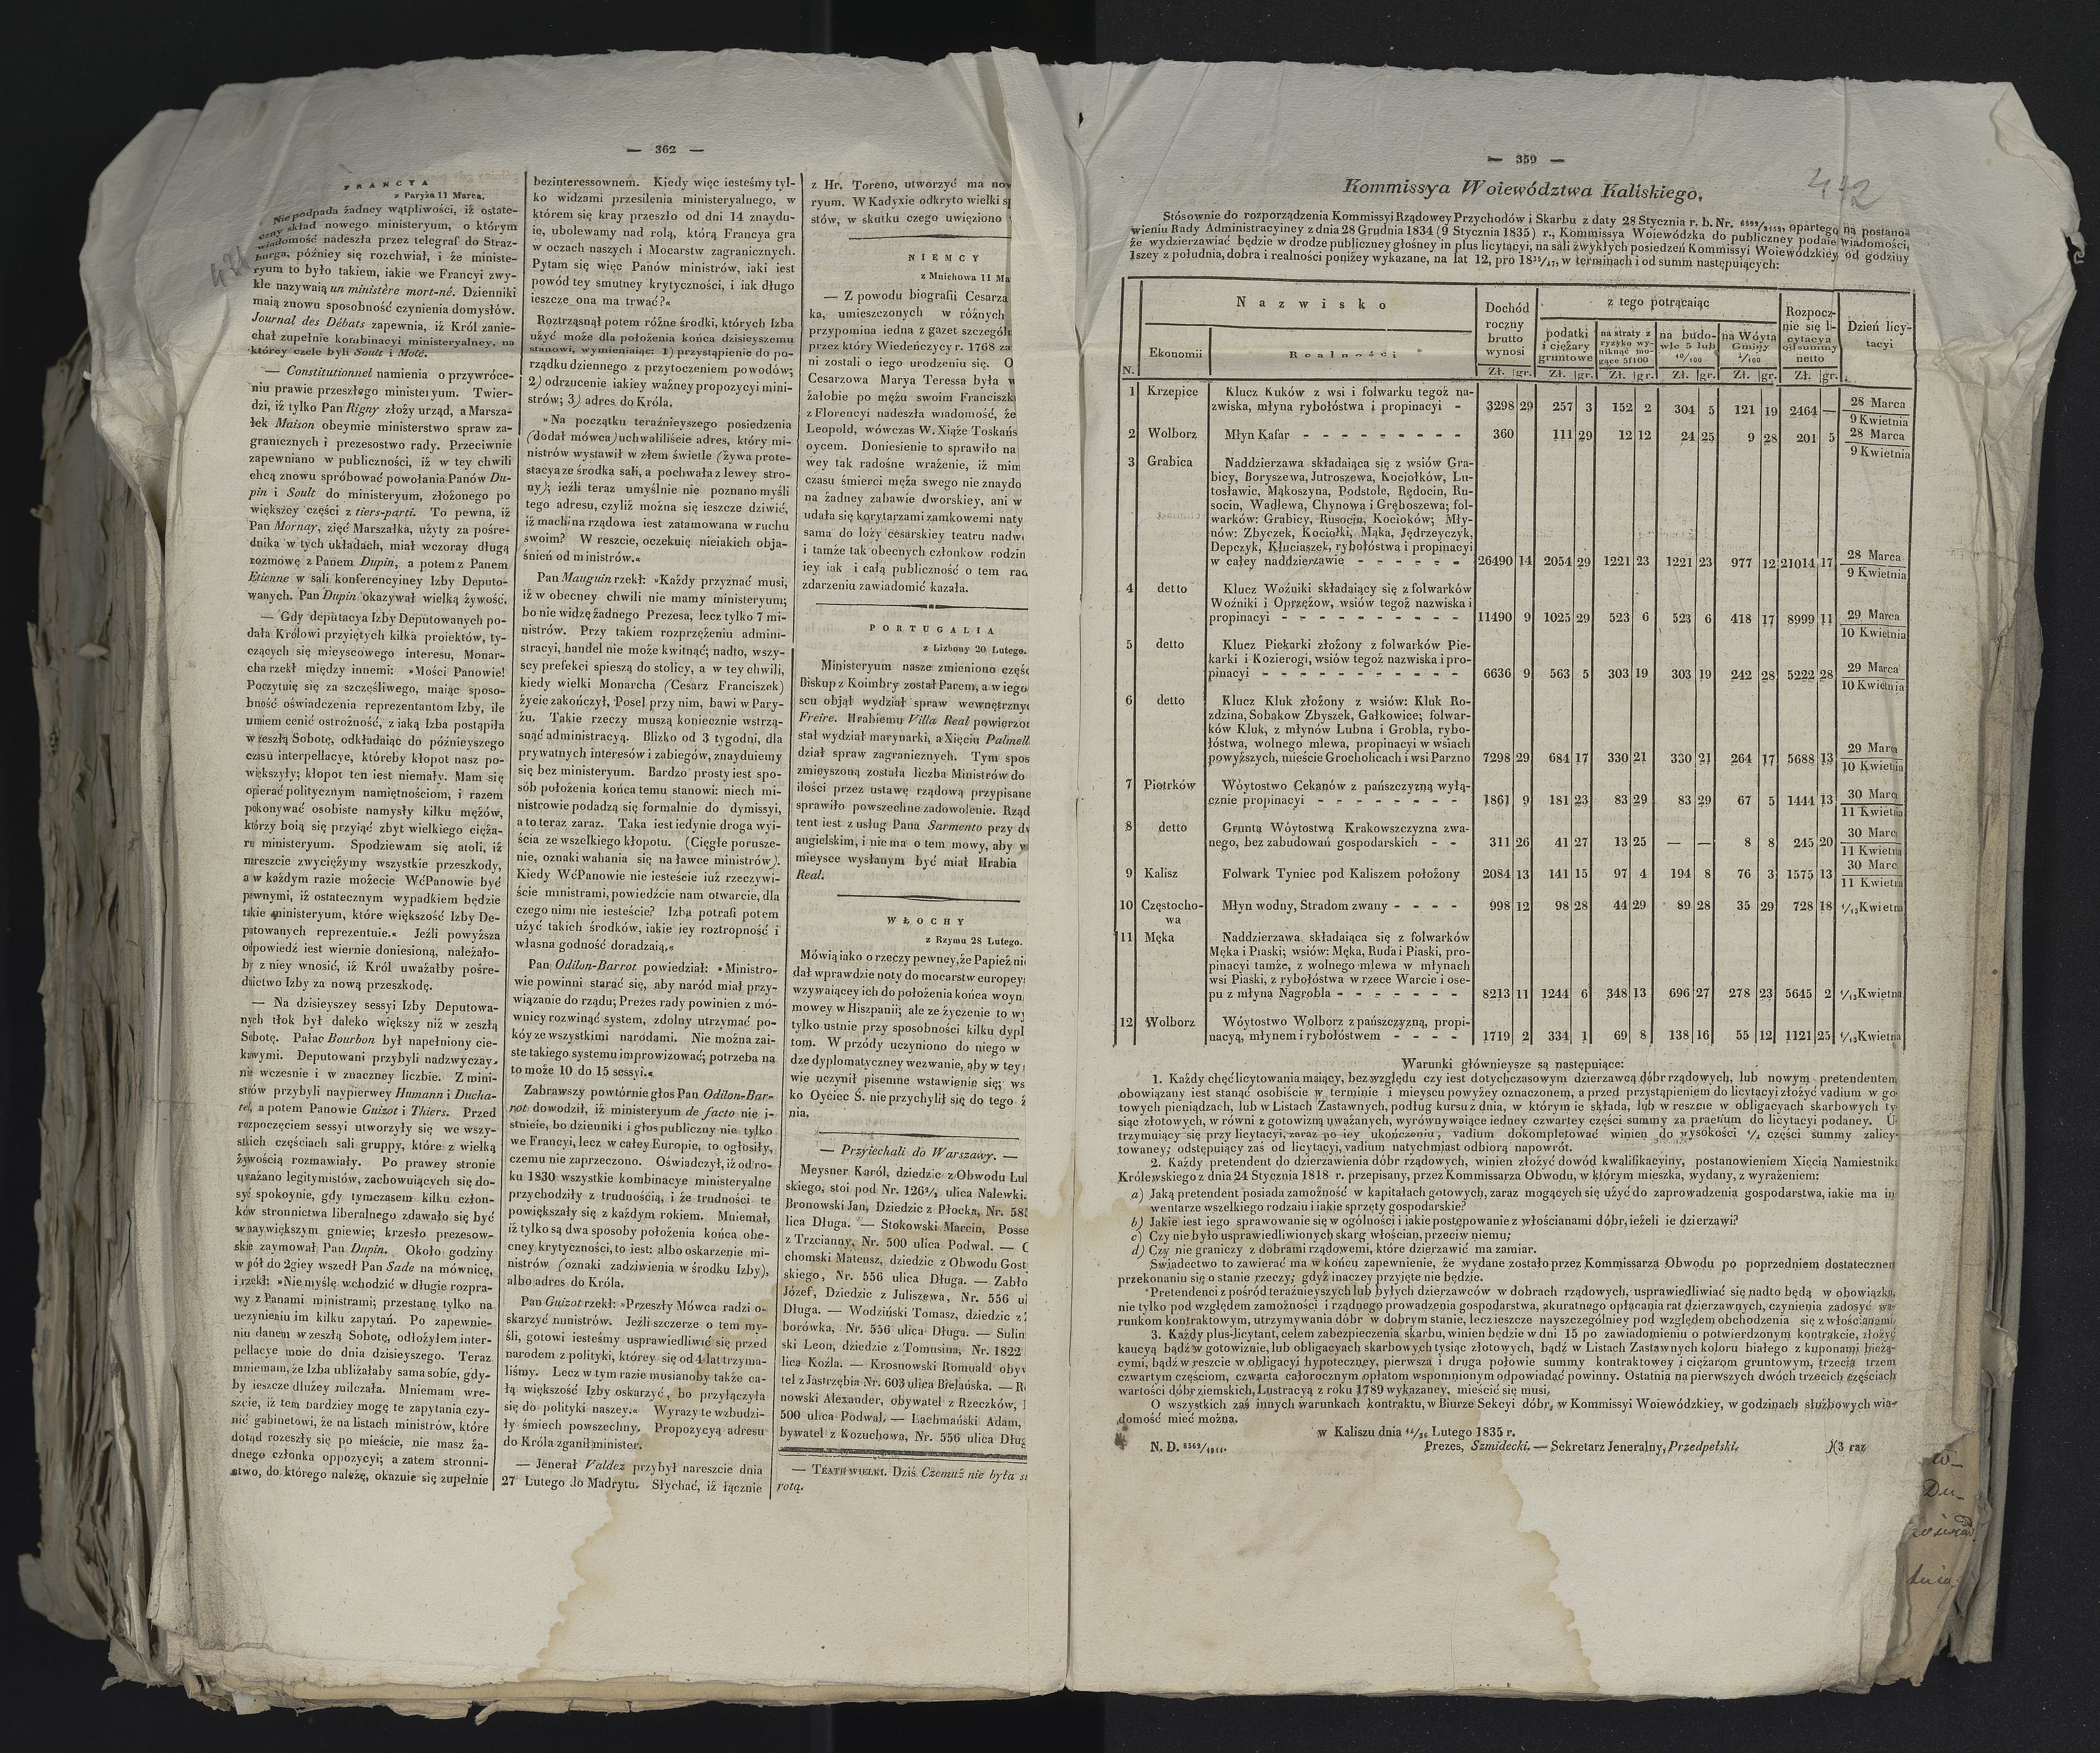 — 362 —
FRANCYA
z Paryża 11 Marca.
Nie podpada żadney wątpliwości, iż ostate-
czny skład nowego ministeryum, o którym
wiadomość nadeszła przez telegraf do Straz-
burga, późniey się rozchwiał, i że ministe-
ryum to było takiem, iakie we Francyi zwy-
kłe nazywaią un ministère mort-né. Dzienniki
maią znowu sposobność czynienia domysłów.
Journal des Débats zapewnia, iż Król zanie-
chał zupełnie kombinacyi ministeryalney, na
którey czele byli Soult i Molé.
— Constitutionnel namienia o przywróce-
niu prawie przeszłego ministeryum. Twier-
dzi, iż tylko Pan Rigny złoży urząd, a Marsza-
łek Maison obeymie ministerstwo spraw za-
granicznych i prezesostwo rady. Przeciwnie
zapewniano w publiczności, iż w tey chwili
chcą znowu spróbować powołania Panów Du-
pin i Soult do ministeryum, złożonego po
większey części z tiers-parti. To pewna, iż
Pan Mornay, zięć Marszałka, użyty za pośre-
dnika w tych układach, miał wczoray długą
rozmowę z Panem Dupin, a potem z Panem
Etienne w sali konferencyiney Izby Deputo-
wanych. Pan Dupin okazywał wielką żywość.
— Gdy deputacya Izby Deputowanych po-
dała Królowi przyiętych kilka proiektów, ty-
czących się mieyscowego interesu, Monar-
cha rzekł między innemi: »Mości Panowie!
Poczytuię się za szczęśliwego, maiąc sposo-
bność oświadczenia reprezentantom Izby, ile
umiem cenić ostrożność, z iaką Izba postąpiła
w zeszłą Sobotę, odkładaiąc do późnieyszego
czasu interpellacye, któreby kłopot nasz po-
większyły; kłopot ten iest niemały. Mam się
opierać politycznym namiętnościom, i razem
pokonywać osobiste namysły kilku mężów,
którzy boią się przyiąć zbyt wielkiego cięża-
ru ministeryum. Spodziewam się atoli, iż
nareszcie zwyciężymy wszystkie przeszkody,
a w każdym razie możecie WćPanowie być
pewnymi, iż ostatecznym wypadkiem będzie
takie ministeryum, które większość Izby De-
putowanych reprezentuie.« Jeźli powyższa
odpowiedź iest wiernie doniesioną, należało-
by z niey wnosić, iż Król uważałby pośre-
dnictwo Izby za nową przeszkodę.
— Na dzisieyszey sessyi Izby Deputowa-
nych tłok był daleko większy niż w zeszłą
Sobotę. Pałac Bourbon był napełniony cie-
kawymi. Deputowani przybyli nadzwyczay-
nie wczesnie i w znaczney liczbie. Z mini-
strów przybyli naypierwey Humann i Ducha-
tel, a potem Panowie Guizot i Thiers. Przed
rozpoczęciem sessyi utworzyły się we wszy-
stkich częściach sali gruppy, które z wielką
żywością rozmawiały. Po prawey stronie
uważano legitymistów, zachowuiących się do-
syć spokoynie, gdy tymczasem kilku człon-
ków stronnictwa liberalnego zdawało się być
w naywiększym gniewie; krzesło prezesow-
skie zaymował Pan Dupin. Około godziny
w pół do 2giey wszedł Pan Sade na mównicę,
i rzekł: »Nie myślę wchodzić w długie rozpra-
wy z Panami ministrami; przestanę tylko na
uczynieniu im kilku zapytań. Po zapewnie-
niu danem w zeszłą Sobotę, odłożyłem inter-
pellacye moie do dnia dzisieyszego. Teraz
mniemam, że Izba ubliżałaby sama sobie, gdy-
by ieszcze dłużey milczała. Mniemam wre-
szcie, iż tem bardziey mogę te zapytania czy-
nić gabinetowi, że na listach ministrów, które
dotąd rozeszły się po mieście, nie masz ża-
dnego członka oppozycyi; a zatem stronni-
ctwo, do którego należę, okazuie się zupełnie
bezinteressownem. Kiedy więc iesteśmy tyl-
ko widzami przesilenia ministeryalnego, w
którem się kray przeszło od dni 14 znaydu-
ie, ubolewamy nad rolą, którą Francya gra
w oczach naszych i Mocarstw zagranicznych.
Pytam się więc Panów ministrów, iaki iest
powód tey smutney krytyczności, i iak długo
ieszcze ona ma trwać?«
Roztrząsnął potem różne środki, których Izba
użyć może dla położenia końca dzisieyszemu
stanowi, wymieniaiąc: 1) przystąpienie do po-
rządku dziennego z przytoczeniem powodów;
2) odrzucenie iakiey ważney propozycyi mini-
strów; 3) adres do Króla.
»Na początku teraźnieyszego posiedzenia
(dodał mówca) uchwaliliście adres, który mi-
nistrów wystawił w złem świetle (żywa prote-
stacya ze środka sali, a pochwała z lewey stro-
ny); ieźli teraz umyślnie nie poznano myśli
tego adresu, czyliż można się ieszcze dziwić,
iż machina rządowa iest zatamowana w ruchu
swoim? W reszcie, oczekuię nieiakich obia-
śnień od ministrów.«
Pan Mauguin rzekł: »Każdy przyznać musi,
iż w obecney chwili nie mamy ministeryum;
bo nie widzę żadnego Prezesa, lecz tylko 7 mi-
nistrów. Przy takiem rozprzężeniu admini-
stracyi, handel nie może kwitnąć; nadto, wszy-
scy prefekci spieszą do stolicy, a w tey chwili,
kiedy wielki Monarcha (Cesarz Franciszek)
życie zakończył, Poseł przy nim, bawi w Pary-
żu. Takie rzeczy muszą koniecznie wstrzą-
snąć administracyą. Blizko od 3 tygodni, dla
prywatnych interesów i zabiegów, znayduiemy
się bez ministeryum. Bardzo prosty iest spo-
sób położenia końca temu stanowi: niech mi-
nistrowie podadzą się formalnie do dymissyi,
a to teraz zaraz. Taka iest iedynie droga wyi-
ścia ze wszelkiego kłopotu. (Cięgłe porusze-
nie, oznaki wahania się na ławce ministrów).
Kiedy WćPanowie nie iesteście iuż rzeczywi-
ście ministrami, powiedzcie nam otwarcie, dla
czego nimi nie iesteście? Izba potrafi potem
użyć takich środków, iakie iey roztropność i
własna godność doradzaią.«
Pan Odilon-Barrot powiedział: »Ministro-
wie powinni starać się, aby naród miał przy-
wiązanie do rządu; Prezes rady powinien z mó-
wnicy rozwinąć system, zdolny utrzymać po-
kóy ze wszystkimi narodami. Nie można zai-
ste takiego systemu improwizować; potrzeba na
to może 10 do 15 sessyi.«
Zabrawszy powtórnie głos Pan Odilon-Bar-
rot dowodził, iż ministeryum de facto nie i-
stnieie, bo dzienniki i głos publiczny nie tylko
we Francyi, lecz w całey Europie, to ogłosiły,
czemu nie zaprzeczono. Oświadczył, iż od ro-
ku 1830 wszystkie kombinacye ministeryalne
przychodziły z trudnością, i że trudności te
powiększały się z każdym rokiem. Mniemał,
iż tylko są dwa sposoby położenia końca obe-
cney krytyczności, to iest: albo oskarżenie mi-
nistrów (oznaki zadziwienia w środku Izby),
albo adres do Króla.
Pan Guizot rzekł: »Przeszły Mówca radzi o-
skarżyć ministrów. Jeźli szczerze o tem my-
śli, gotowi iesteśmy usprawiedliwić się przed
narodem z polityki, którey się od 4 lat trzyma-
liśmy. Lecz w tym razie musianoby także ca-
łą większość Izby oskarżyć, bo przyłączyła
się do polityki naszey.« Wyrazy te wzbudzi-
ły śmiech powszechny. Propozycyą adresu
do Króla zganił minister.
— Jenerał Valdez przybył nareszcie dnia
27 Lutego do Madrytu. Słychać, iż łącznie
z Hr. Toreno, utworzyć ma
ryum. W Kadyxie odkryto wielki
stów, w skutku czego uwięziono
NIEMCY
z Mnichowa 11
— Z powodu biografii Cesarza
ka, umieszczonych w różnych
przypomina iedna z gazet
przez który Wiedeńczycy r. 1768
ni zostali o iego urodzeniu się.
Cesarzowa Marya Teressa była
żałobie po mężu swoim
z Florencyi nadeszła wiadomość, że
Leopold, wówczas W. Xiąże
oycem. Doniesienie to sprawiło na
wey tak radośne wrażenie, iż
czasu śmierci męża swego nie
na żadney zabawie dworskiey, ani w
udała się korytarzami zamkowemi
sama do loży cesarskiey teatru
i tamże tak obecnych członków
iey iak i całą publiczność o tem
zdarzeniu zawiadomić kazała.
PORTUGALIA
z Lizbony 20 Lutego.
Ministeryum nasze zmieniono
Biskup z Koimbry został Parem, a w iego
scu objął wydział spraw
Freire. Hrabiemu Villa Real
stał wydział marynarki, a Xięciu
dział spraw zagranicznych. Tym
zmieyszoną została liczba Ministrów do
ilości przez ustawę rządową
sprawiło powszechne zadowolenie.
tent iest z usług Pana Sarmento przy
angielskim, i nie ma o tem mowy, aby
mieysce wysłanym być miał Hrabia
Real.
WŁOCHY
z Rzymu 28 Lutego.
Mówią iako o rzeczy pewney, że Papież
dał wprawdzie noty do mocarstw
wzywaiącey ich do położenia końca
mowey w Hiszpanii; ale ze życzenie to
tylko ustnie przy sposobności kilku
tom. W przódy uczyniono do niego w
dze dyplomatyczney wezwanie, aby w tey
wie uczynił pisemne wstawienie się;
ko Oyciec Ś. nie przychylił się do tego
nia.
— Przyiechali do Warszawy. —
Meysner Karól, dziedzic z Obwodu
skiego, stoi pod Nr. 126³/₃ ulica Nalewki.
Bronowski Jan, Dziedzic z Płocka, Nr.
lica Długa. — Stokowski Marcin,
z Trzcianny, Nr. 500 ulica Podwal. —
chomski Mateusz, dziedzic z Obwodu
skiego, Nr. 556 ulica Długa. —
Józef, Dziedzic z Juliszewa, Nr. 556
Długa. — Wodziński Tomasz, dziedzic z
borówka, Nr. 556 ulica Długa. —
ski Leon, dziedzic z Tomusina, Nr. 1822
lica Koźla. — Krosnowski Romuald
tel z Jastrzębia Nr. 603 ulica Bielańska. —
nowski Alexander, obywatel z Rzeczków,
500 ulica Podwal. — Lachmański Adam,
bywatel z Kozuchowa, Nr. 556 ulica
— TEATR WIELKI. Dziś Czemuż nie była
rotą.
— 359 —
442
Kommissya Woiewództwa Kaliskiego.
Stósownie do rozporządzenia Kommissyi Rządowey Przychodów i Skarbu z daty 28 Stycznia r. b. Nr. opartego na postano-
wieniu Rady Administracyiney z dnia 28 Grudnia 1834 (9 Stycznia 1835) r., Kommissya Woiewódzka do publiczney podaie wiadomości,
że wydzierzawiać będzie w drodze publiczney głośney in plus licytacyi, na sali zwykłych posiedzeń Kommissyi Woiewódzkiey od godziny
1szey z południa, dobra i realności poniżey wykazane, na lat 12, pro 18³⁵/₄₇, w terminach i od summ następuiących:
N. Nazwisko Ekonomii Realności Dochód roczny brutto wynosi z tego potrącaiąc podatki i ciężary gruntowe na straty z ryzyko wyniknąć mogące 5f100 na budowle 5 lub 10/100 na Wóyta Gminy 4/100 Rozpocznie się licytacya od summy netto Dzień licytacyi
Zł. gr. Zł. gr. Zł. gr. Zł. gr. Zł. gr. Zł. gr.
1 Krzepice Klucz Kuków z wsi i folwarku tegoż na-
zwiska, młyna rybołóstwa i propinacyi - 3298 29 257 3 152 2 304 5 121 19 2464 — 28 Marca / 9 Kwietnia
2 Wolborz Młyn Kafar - - - - - - - - - 360 111 29 12 12 24 25 9 28 201 5 28 Marca / 9 Kwietnia
3 Grabica Naddzierzawa składaiąca się z wsiów Gra-
bicy, Boryszewa, Jutroszewa, Kociołków, Lu-
tosławic, Mąkoszyna, Podstole, Rędocin, Ru-
socin, Wadlewa, Chynowa i Gręboszewa; fol-
warków: Grabicy, Rusocin, Kocioków; Mły-
nów: Zbyczek, Kociołki, Mąka, Jędrzeyczyk,
Depczyk, Kłuciaszek, rybołóstwa i propinacyi
w całey naddzierzawie - - - - - - 26490 14 2054 29 1221 23 1221 23 977 12 21014 17 28 Marca / 9 Kwietnia
4 detto Klucz Woźniki składaiący się z folwarków
Woźniki i Oprzężow, wsiów tegoż nazwiska i
propinacyi - - - - - - - - - - 11490 9 1025 29 523 6 523 6 418 17 8999 11 29 Marca / 10 Kwietnia
5 detto Klucz Piekarki złożony z folwarków Pie-
karki i Kozierogi, wsiów tegoż nazwiska i pro-
pinacyi - - - - - - - - - - - 6636 9 563 5 303 19 303 19 242 28 5222 28 29 Marca / 10 Kwietnia
6 detto Klucz Kluk złożony z wsiów: Kluk Ro-
zdzina, Sobakow Zbyszek, Gałkowice; folwar-
ków Kluk, z młynów Lubna i Grobla, rybo-
łóstwa, wolnego mlewa, propinacyi w wsiach
powyższych, mieście Grocholicach i wsi Parzno 7298 29 684 17 330 21 330 21 264 17 5688 13 29 Marca / 10 Kwietnia
7 Piotrków Wóytostwo Cekanów z pańszczyzną wyłą-
cznie propinacyi - - - - - - - - 1861 9 181 23 83 29 83 29 67 5 1444 13 30 Marca / 11 Kwietnia
8 detto Grunta Wóytostwa Krakowszczyzna zwa-
nego, bez zabudowań gospodarskich - - 311 26 41 27 13 25 — — 8 8 245 20 30 Marca / 11 Kwietnia
9 Kalisz Folwark Tyniec pod Kaliszem położony 2084 13 141 15 97 4 194 8 76 3 1575 13 30 Marc / 11 Kwietnia
10 Częstocho-
wa Młyn wodny, Stradom zwany - - - - 998 12 98 28 44 29 89 28 35 29 728 18 ¹/₁₃ Kwietnia
11 Męka Naddzierzawa składaiąca się z folwarków
Męka i Piaski; wsiów: Męka, Ruda i Piaski, pro-
pinacyi tamże, z wolnego mlewa w młynach
wsi Piaski, z rybołóstwa w rzece Warcie i ose-
pu z młyna Nagrobla - - - - - - - 8213 11 1244 6 348 13 696 27 278 23 5645 2 ¹/₁₃ Kwietnia
12 Wolborz Wóytostwo Wolborz z pańszczyzną, propi-
nacyą, młynem i rybołóstwem - - - - 1719 2 334 1 69 8 138 16 55 12 1121 25 ¹/₁₃ Kwietnia
Warunki głównieysze są następuiące:
1. Każdy chęć licytowania maiący, bez względu czy iest dotychczasowym dzierzawcą dóbr rządowych, lub nowym pretendentem
obowiązany iest stanąć osobiście w terminie i mieyscu powyżey oznaczonem, a przed przystąpieniem do licytacyi złożyć vadium w go-
towych pieniądzach, lub w Listach Zastawnych, podług kursu z dnia, w którym ie składa, lub w reszcie w obligacyach skarbowych ty-
siąc złotowych, w równi z gotowizną uważanych, wyrównywaiące iedney czwartey części summy za praetium do licytacyi podaney. U-
trzymuiący się przy licytacyi, zaraz po iey ukończeniu, vadium dokompletować winien do wysokości ¹/₄ części summy zalicy-
towaney; odstępuiący zaś od licytacyi, vadium natychmiast odbiorą napowrót.
2. Każdy pretendent do dzierzawienia dóbr rządowych, winien złożyć dowód kwalifikacyiny, postanowieniem Xięcia Namiestnika
Królewskiego z dnia 24 Stycznia 1818 r. przepisany, przez Kommissarza Obwodu, w którym mieszka, wydany, z wyrażeniem:
a) Jaką pretendent posiada zamożność w kapitałach gotowych, zaraz mogących się użyć do zaprowadzenia gospodarstwa, iakie ma in-
wentarze wszelkiego rodzaiu i iakie sprzęty gospodarskie?
b) Jakie iest iego sprawowanie się w ogólności i iakie postępowanie z włościanami dóbr, ieżeli ie dzierzawi?
c) Czy nie było usprawiedliwionych skarg włościan, przeciw niemu;
d) Czy nie graniczy z dobrami rządowemi, które dzierzawić ma zamiar.
Świadectwo to zawierać ma w końcu zapewnienie, że wydane zostało przez Kommissarza Obwodu po poprzedniem dostatecznem
przekonaniu się o stanie rzeczy; gdyż inaczey przyięte nie będzie.
Pretendenci z pośród teraźnieyszych lub byłych dzierzawców w dobrach rządowych, usprawiedliwiać się nadto będą w obowiązku,
nie tylko pod względem zamożności i rządnego prowadzenia gospodarstwa, akuratnego opłacania rat dzierzawnych, czynienia zadosyć wa-
runkom kontraktowym, utrzymywania dóbr w dobrym stanie, lecz ieszcze nayszczególniey pod względem obchodzenia się z włościanami.
3. Każdy plus-licytant, celem zabezpieczenia skarbu, winien będzie w dni 15 po zawiadomieniu o potwierdzonym kontrakcie, złożyć
kaucyą bądź w gotowiznie, lub obligacyach skarbowych tysiąc złotowych, bądź w Listach Zastawnych koloru białego z kuponami bieżą-
cymi, bądź w reszcie w obligacyi hypoteczney, pierwsza i druga połowie summy kontraktowey i ciężarom gruntowym, trzecia trzem
czwartym częściom, czwarta całorocznym opłatom wspomnionym odpowiadać powinny. Ostatnia na pierwszych dwóch trzecich częściach
wartości dóbr ziemskich, Lustracyą z roku 1789 wykazaney, mieścić się musi.
O wszystkich zaś innych warunkach kontraktu, w Biurze Sekcyi dóbr, w Kommissyi Woiewódzkiey, w godzinach służbowych wia-
domość mieć można.
w Kaliszu dnia ¹⁴/₂₆ Lutego 1835 r.
N. D. ⁸⁵⁶⁹/₄₉₁₁. Prezes, Szmidecki. — Sekretarz Jeneralny, Przedpełski. )(3 raz